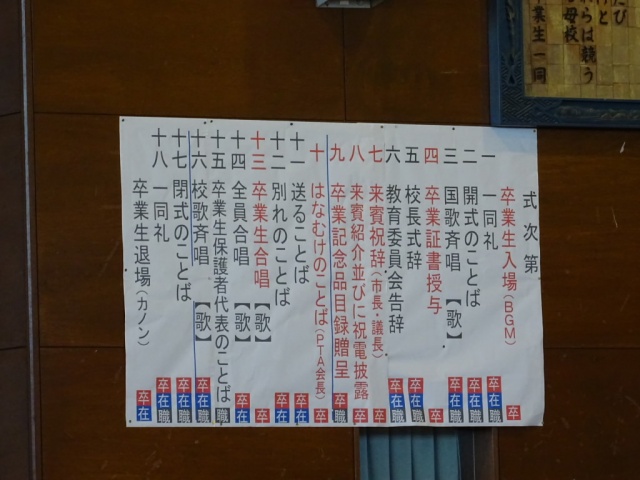 式次第
卒業生入場(BGM) 卒
一 一同礼 卒在職
二 開式のことば 卒在職
三 国歌斉唱【歌】 卒在職
四 卒業証書授与 卒
五 校長式辞 卒在職
六 教育委員会告辞 卒在職
七 来賓祝辞(市長・議長) 卒
八 来賓紹介並びに祝電披露 卒
九 卒業記念品目録贈呈 卒職
十 はなむけのことば(PTA会長) 卒
十一 送ることば 卒在
十二 別れのことば 卒在
十三 卒業生合唱【歌】 卒
十四 全員合唱【歌】 卒在
十五 卒業生保護者代表のことば 職
十六 校歌斉唱【歌】 卒在職
十七 閉式のことば 卒在職
十八 一同礼 卒在職
卒業生退場(カノン) 卒在
たび
けと
れらは競う
の母校
業生一同